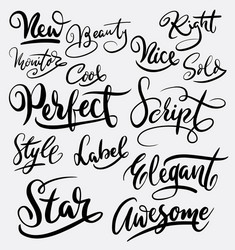 New Beauty Right
Monitor Nice Solo
Cool
Perfect Script
Style Label
Elegant
Star Awesome